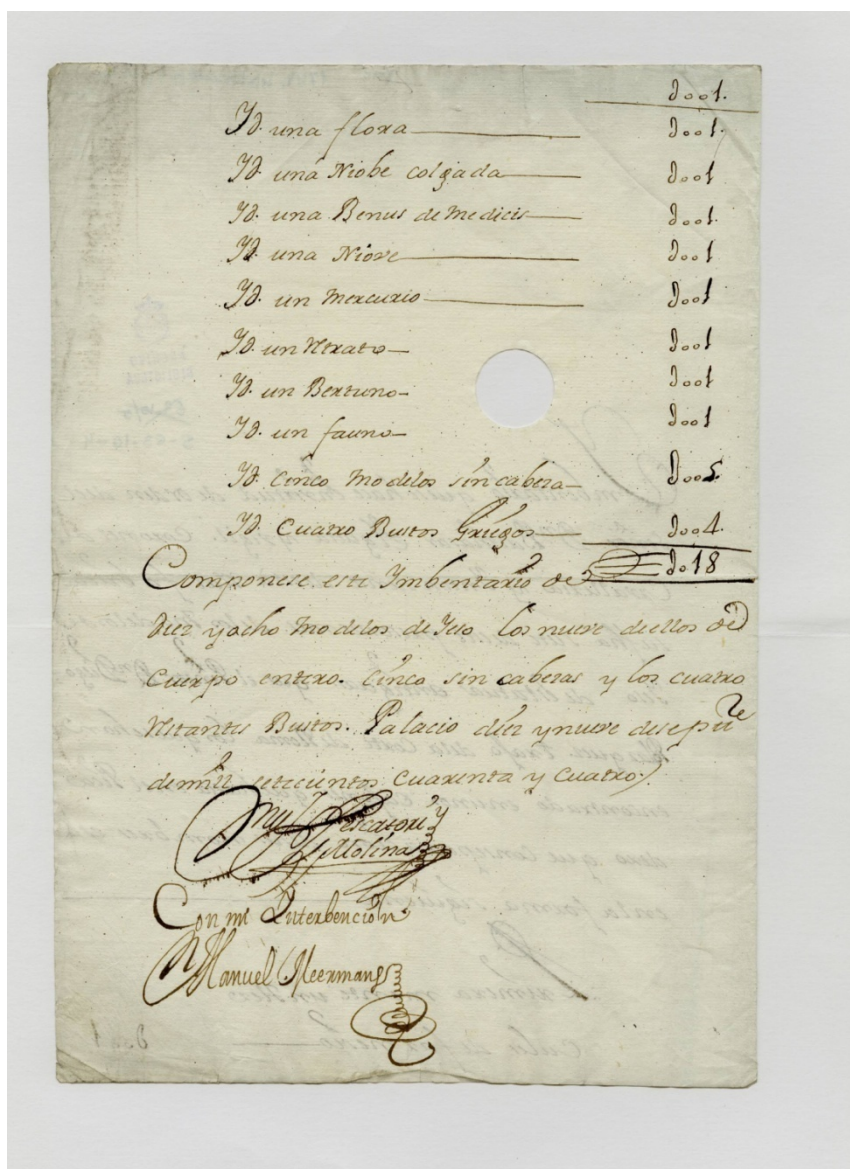 d001.
Yd. una flora d001.
Yd. una Niobe colgada d001
Yd. una Benus de Medicis d001.
Yd. una Niove d001
Yd. un Mercurio d001
Yd. un Rtrato d001
Yd. un Bertuno d001
Yd. un fauno d001
Yd. Cinco Modelos sin cabeza d005
Yd. Cuatro Bustos Griegos d004.
Componese este Ymbentario de d018
diez y ocho Modelos de Yeso los nueve de ellos de
Cuerpo entero. cinco sin cabezas y los cuatro
Rstantes Bustos. Palacio diez y nueve de sepre
de mill setecientos Cuarenta y Cuatro.
Pescatori y
Molina
Con mi Interbención
Manuel Meermans